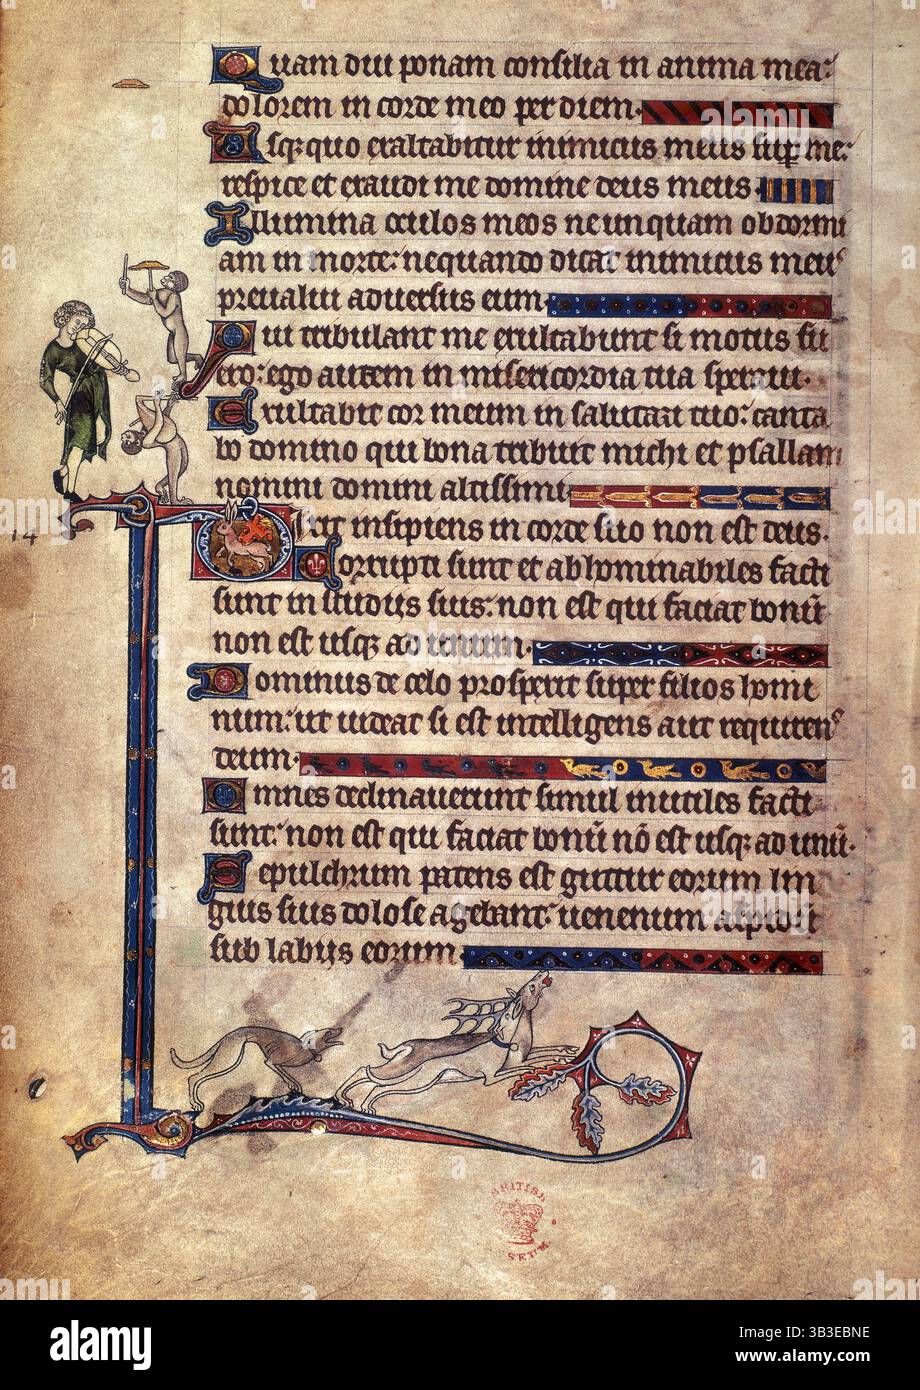 Quam diu ponam consilia in anima mea:
dolorem in corde meo per diem.
Usqꝫ quo exaltabitur inimicus meus suꝑ me:
respice et exaudi me domine deus meus.
Illumina oculos meos ne unquam obdormi
am in morte: nequando dicat inimicus meus
preualui aduersus eum.
Qui tribulant me exultabunt si motus fu
ero: ego autem in misericordia tua speraui.
Exultabit cor meum in salutari tuo: canta
bo domino qui bona tribuit michi et psallam
nomini domini altissimi.
Dixit insipiens in corde suo non est deus.
14
Corrupti sunt et abhominabiles facti
sunt in studijs suis: non est qui faciat bonū
non est usqꝫ ad unum.
Dominus de celo prosperit super filios homi
num: ut uideat si est intelligens aut requirens
deum.
Omnes declinauerunt simul inutiles facti
sunt: non est qui faciat bonū nō est usqꝫ ad unū.
Sepulchrum patens est guttur eorum lin
guis suis dolose agebant: uenenum aspidū
sub labijs eorum.
BRITISH
SEUM
alamy
Image ID: 3B3EBNE
www.alamy.com